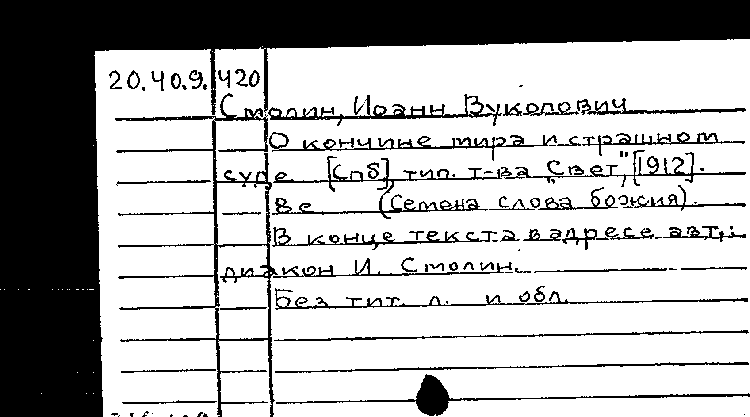 20.40.9.420
Столин, Иоанн Вуколович
О кончине мира и страшном
суде [Спб] тип. т-ва "Свет", [1912].
8 с (Семена слова божия).
В конце текста в адресе авт.:
диакон И. Столин.
Без тит. л. и обл.